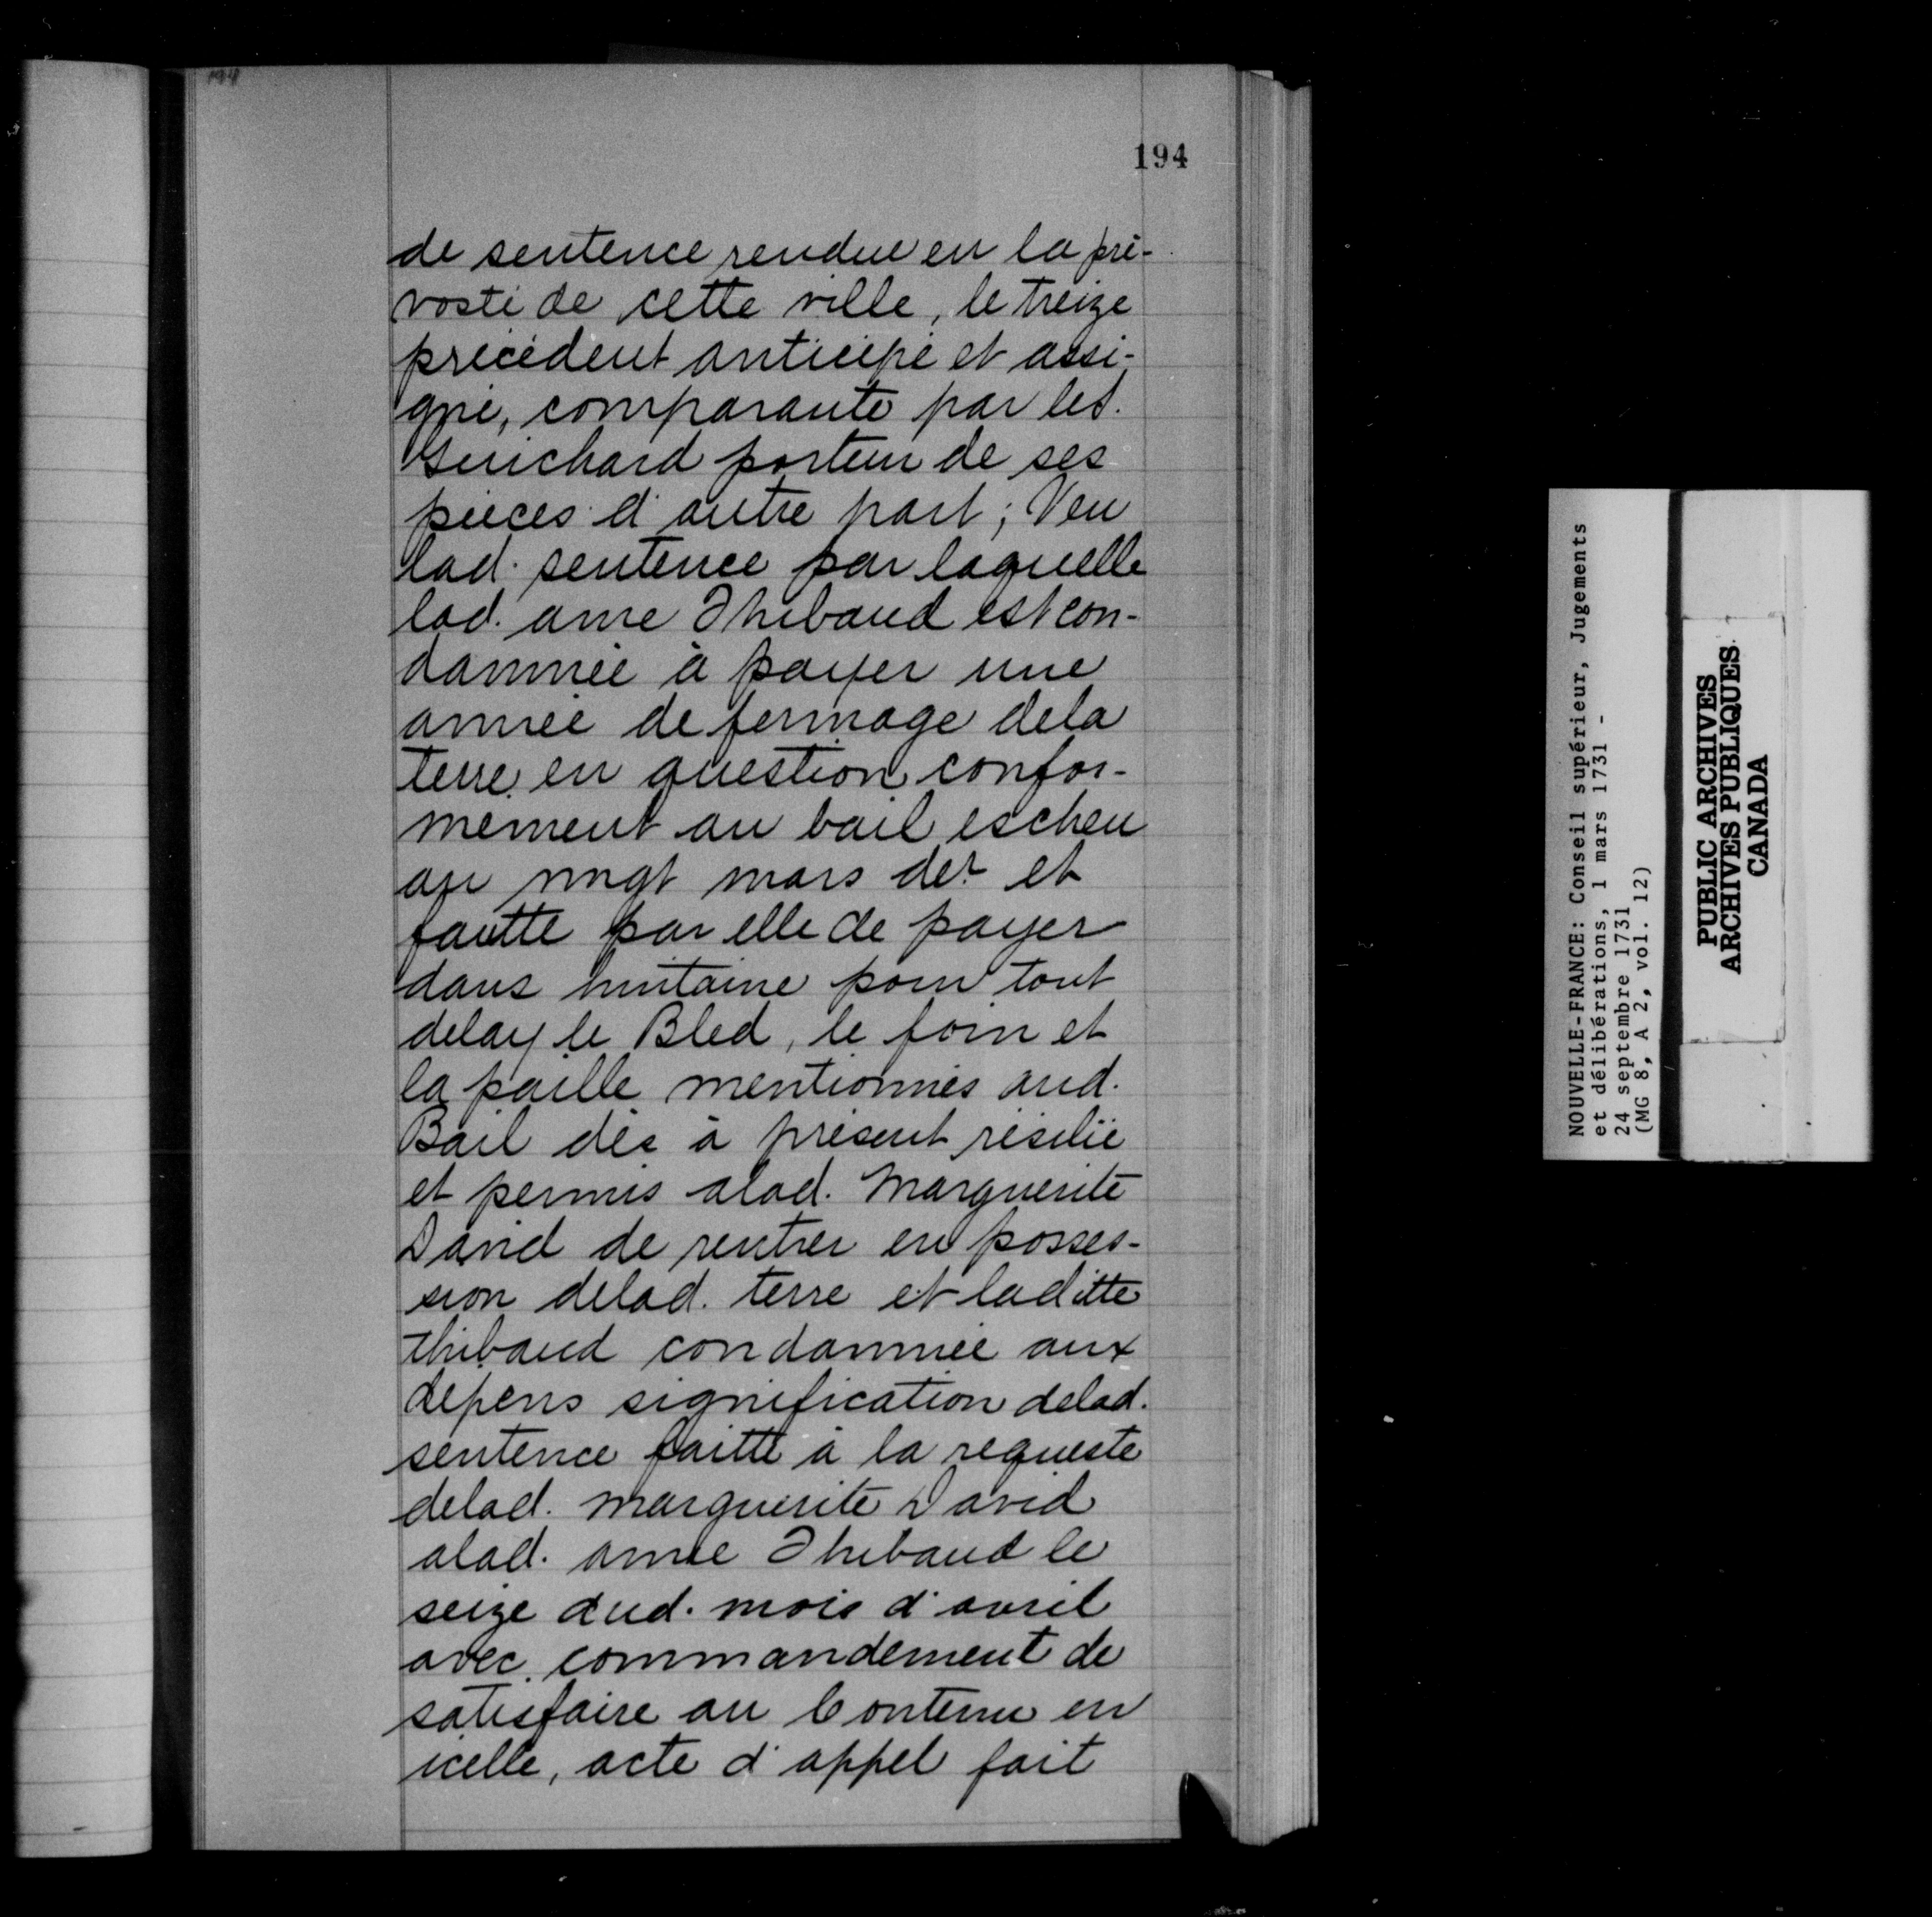 194
194
de sentence rendue en la pré-
vosté de cette ville, le treize
précédent anticipé et assi-
gné, comparante par le s.
Guichard porteur de ses
pieces d'autre part; Veu
lad. sentence par laquelle
lad. anne Thibaud est con-
damnée à payer une
année de fermage dela
terre en question confor-
mement au bail escheu
au vingt mars der et
fautte par elle de payer
dans huitaine pour tout
delay le Bled, le foin et
la paille mentionnés aud.
Bail dès à présent résilié
et permis alad. Marguerite
David de rentrer en posses-
sion delad. terre et laditte
thibaud condamnée aux
depens signification delad.
sentence faitte à la requeste
delad. marguerite David
alad. anne Thibaud le
seize dud. mois d'avril
avec commandement de
satisfaire au Contenu en
icelle, acte d'appel fait
NOUVELLE-FRANCE: Conseil supérieur, Jugements
et délibérations, 1 mars 1731 -
24 septembre 1731
(MG 8, A 2, vol. 12)
PUBLIC ARCHIVES
ARCHIVES PUBLIQUES
CANADA